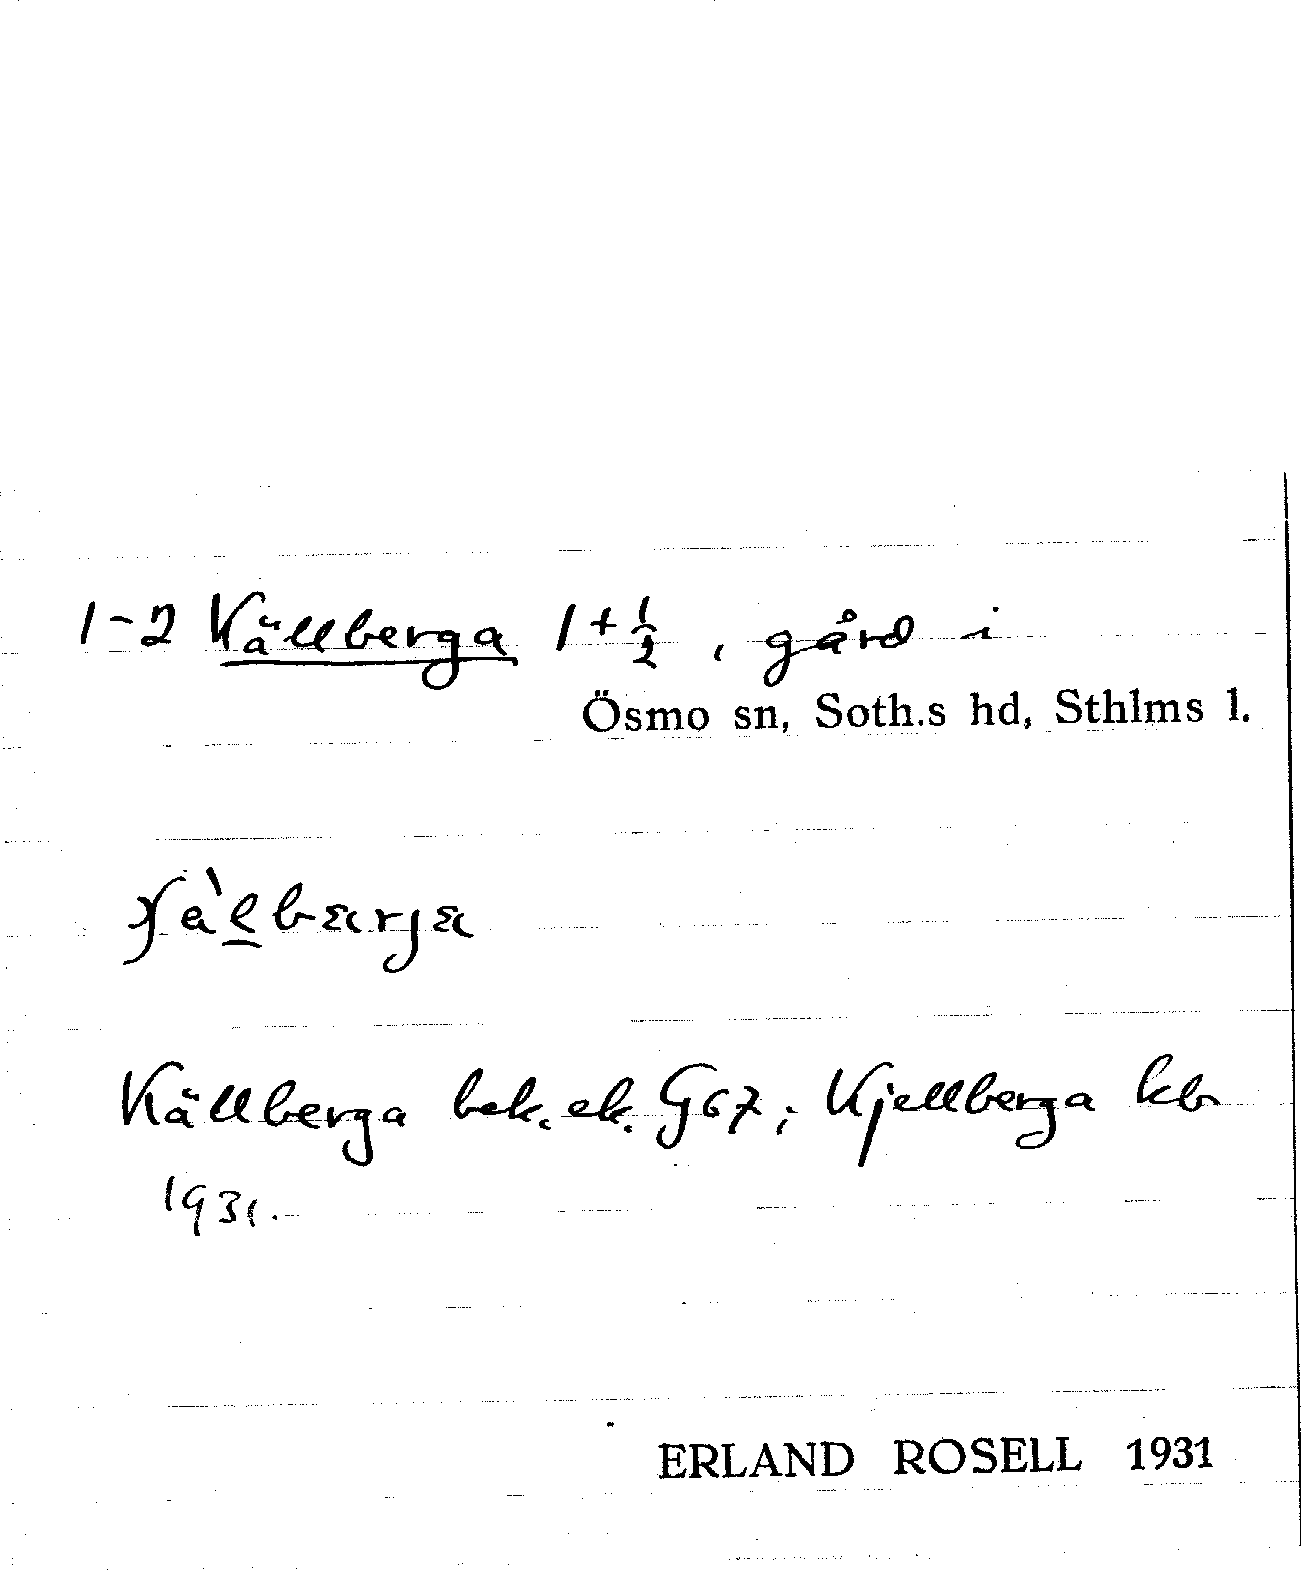 1-2 Källberga 1+½, gård i
Ösmo sn, Soth.s hd, Sthlms l.
Källberga bek. ek. G67; Kjellberga kb
1931.
ERLAND ROSELL 1931